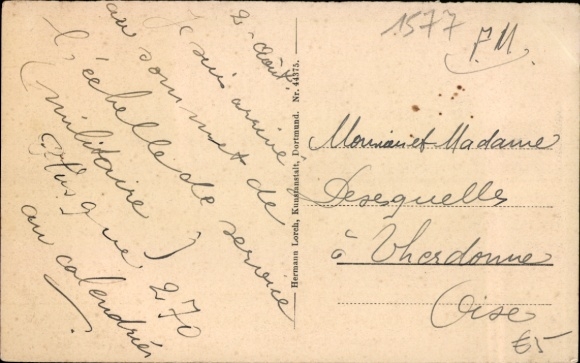 2 - Août
Je suis arrivé
au sommet de
l'échelle de service
(militaire)
et plus que 270
au calendrier
Hermann Lorch, Kunstanstalt, Dortmund. Nr. 44375.
1577
F.M.
Monsieur et Madame
Desesquelles
à Uherdonne
Oise
€5